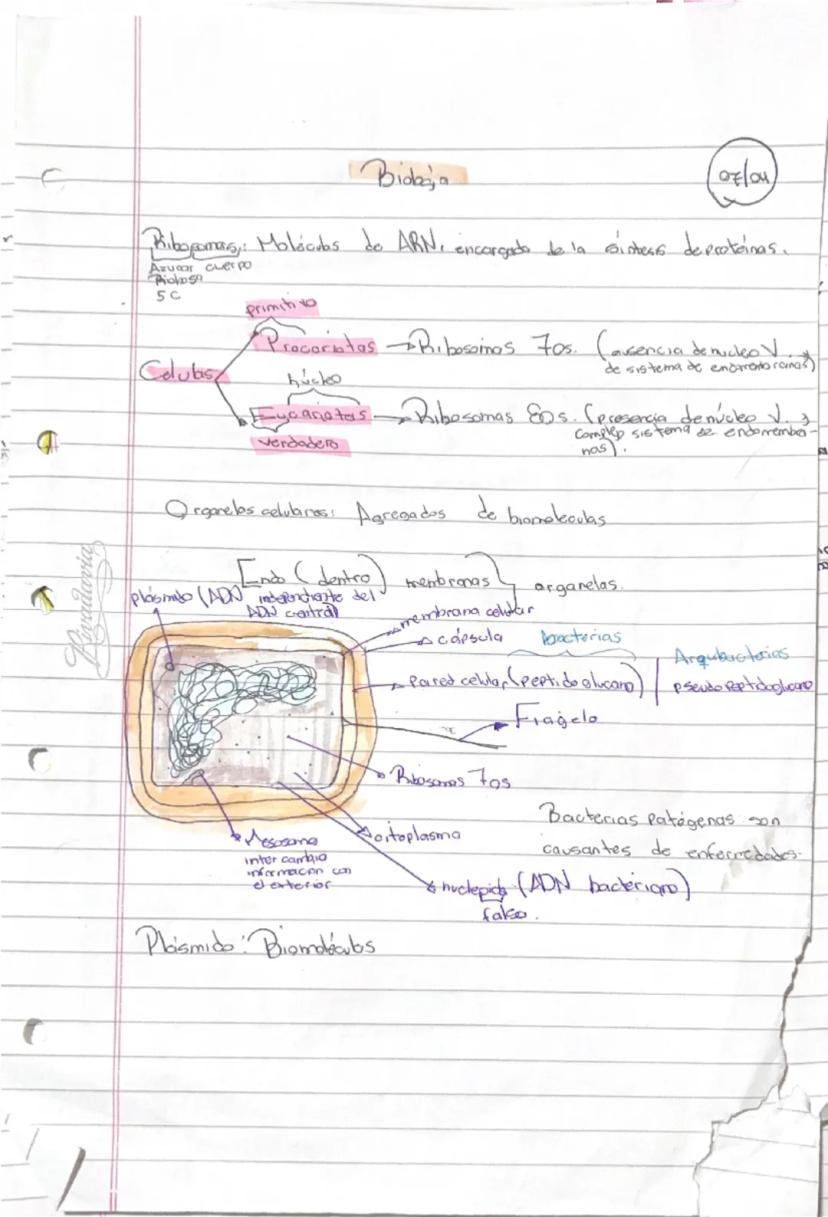 Biología
07/04
Ribosomas: Moléculas de ARN, encargado de la síntesis de proteínas.
Azucar cuerpo
Ribosa
5C
primitivo
Procariotas → Ribosomas 70s. (ausencia de nucleo V. y
de sistema de endomembranas)
Celulas
núcleo
Eucariotas → Ribosomas 80s. (presencia de núcleo V. y
complejo sistema de endomembra-
nas).
verdadero
Organelos celulares: Agregados de biomoleculas
Endo (dentro) membranas organelas.
plásmido (ADN independiente del
ADN central)
membrana celular
cápsula
bacterias
Arqubacterias
Pared celular (peptidoglucano)
pseudopeptidoglucano
Flagelo
Ribosomas 70s
Bacterias patógenas son
causantes de enfermedades.
citoplasma
Mesosoma
intercambio
informacion con
el exterior
nucleoide (ADN bacteriano)
falso.
Plásmido: Biomoléculas
Rivadavia